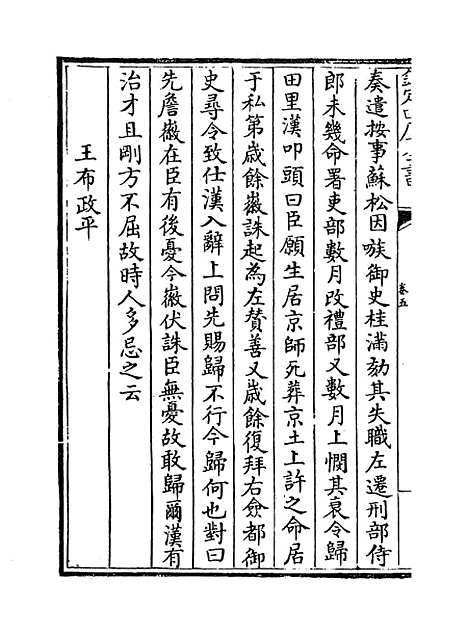 奏遣按事蘇松因嗾御史桂滿劾其失職左遷刑部侍
郎未幾命署吏部數月改禮部又數月上憫其衰令歸
田里漢叩頭曰臣願生居京師死葬京土上許之命居
于私第歳餘徽誅起為左賛善又歳餘復拜右僉都御
史尋令致仕漢入辭上問先賜歸不行今歸何也對曰
先詹徽在臣有後憂今徽伏誅臣無憂故敢歸爾漢有
治才且剛方不屈故時人多忌之云
王布政平
欽定四庫全書
卷五